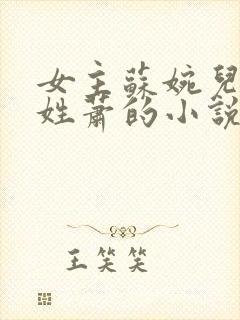 女主蘇婉兒
姓蕭的小說
王笑笑